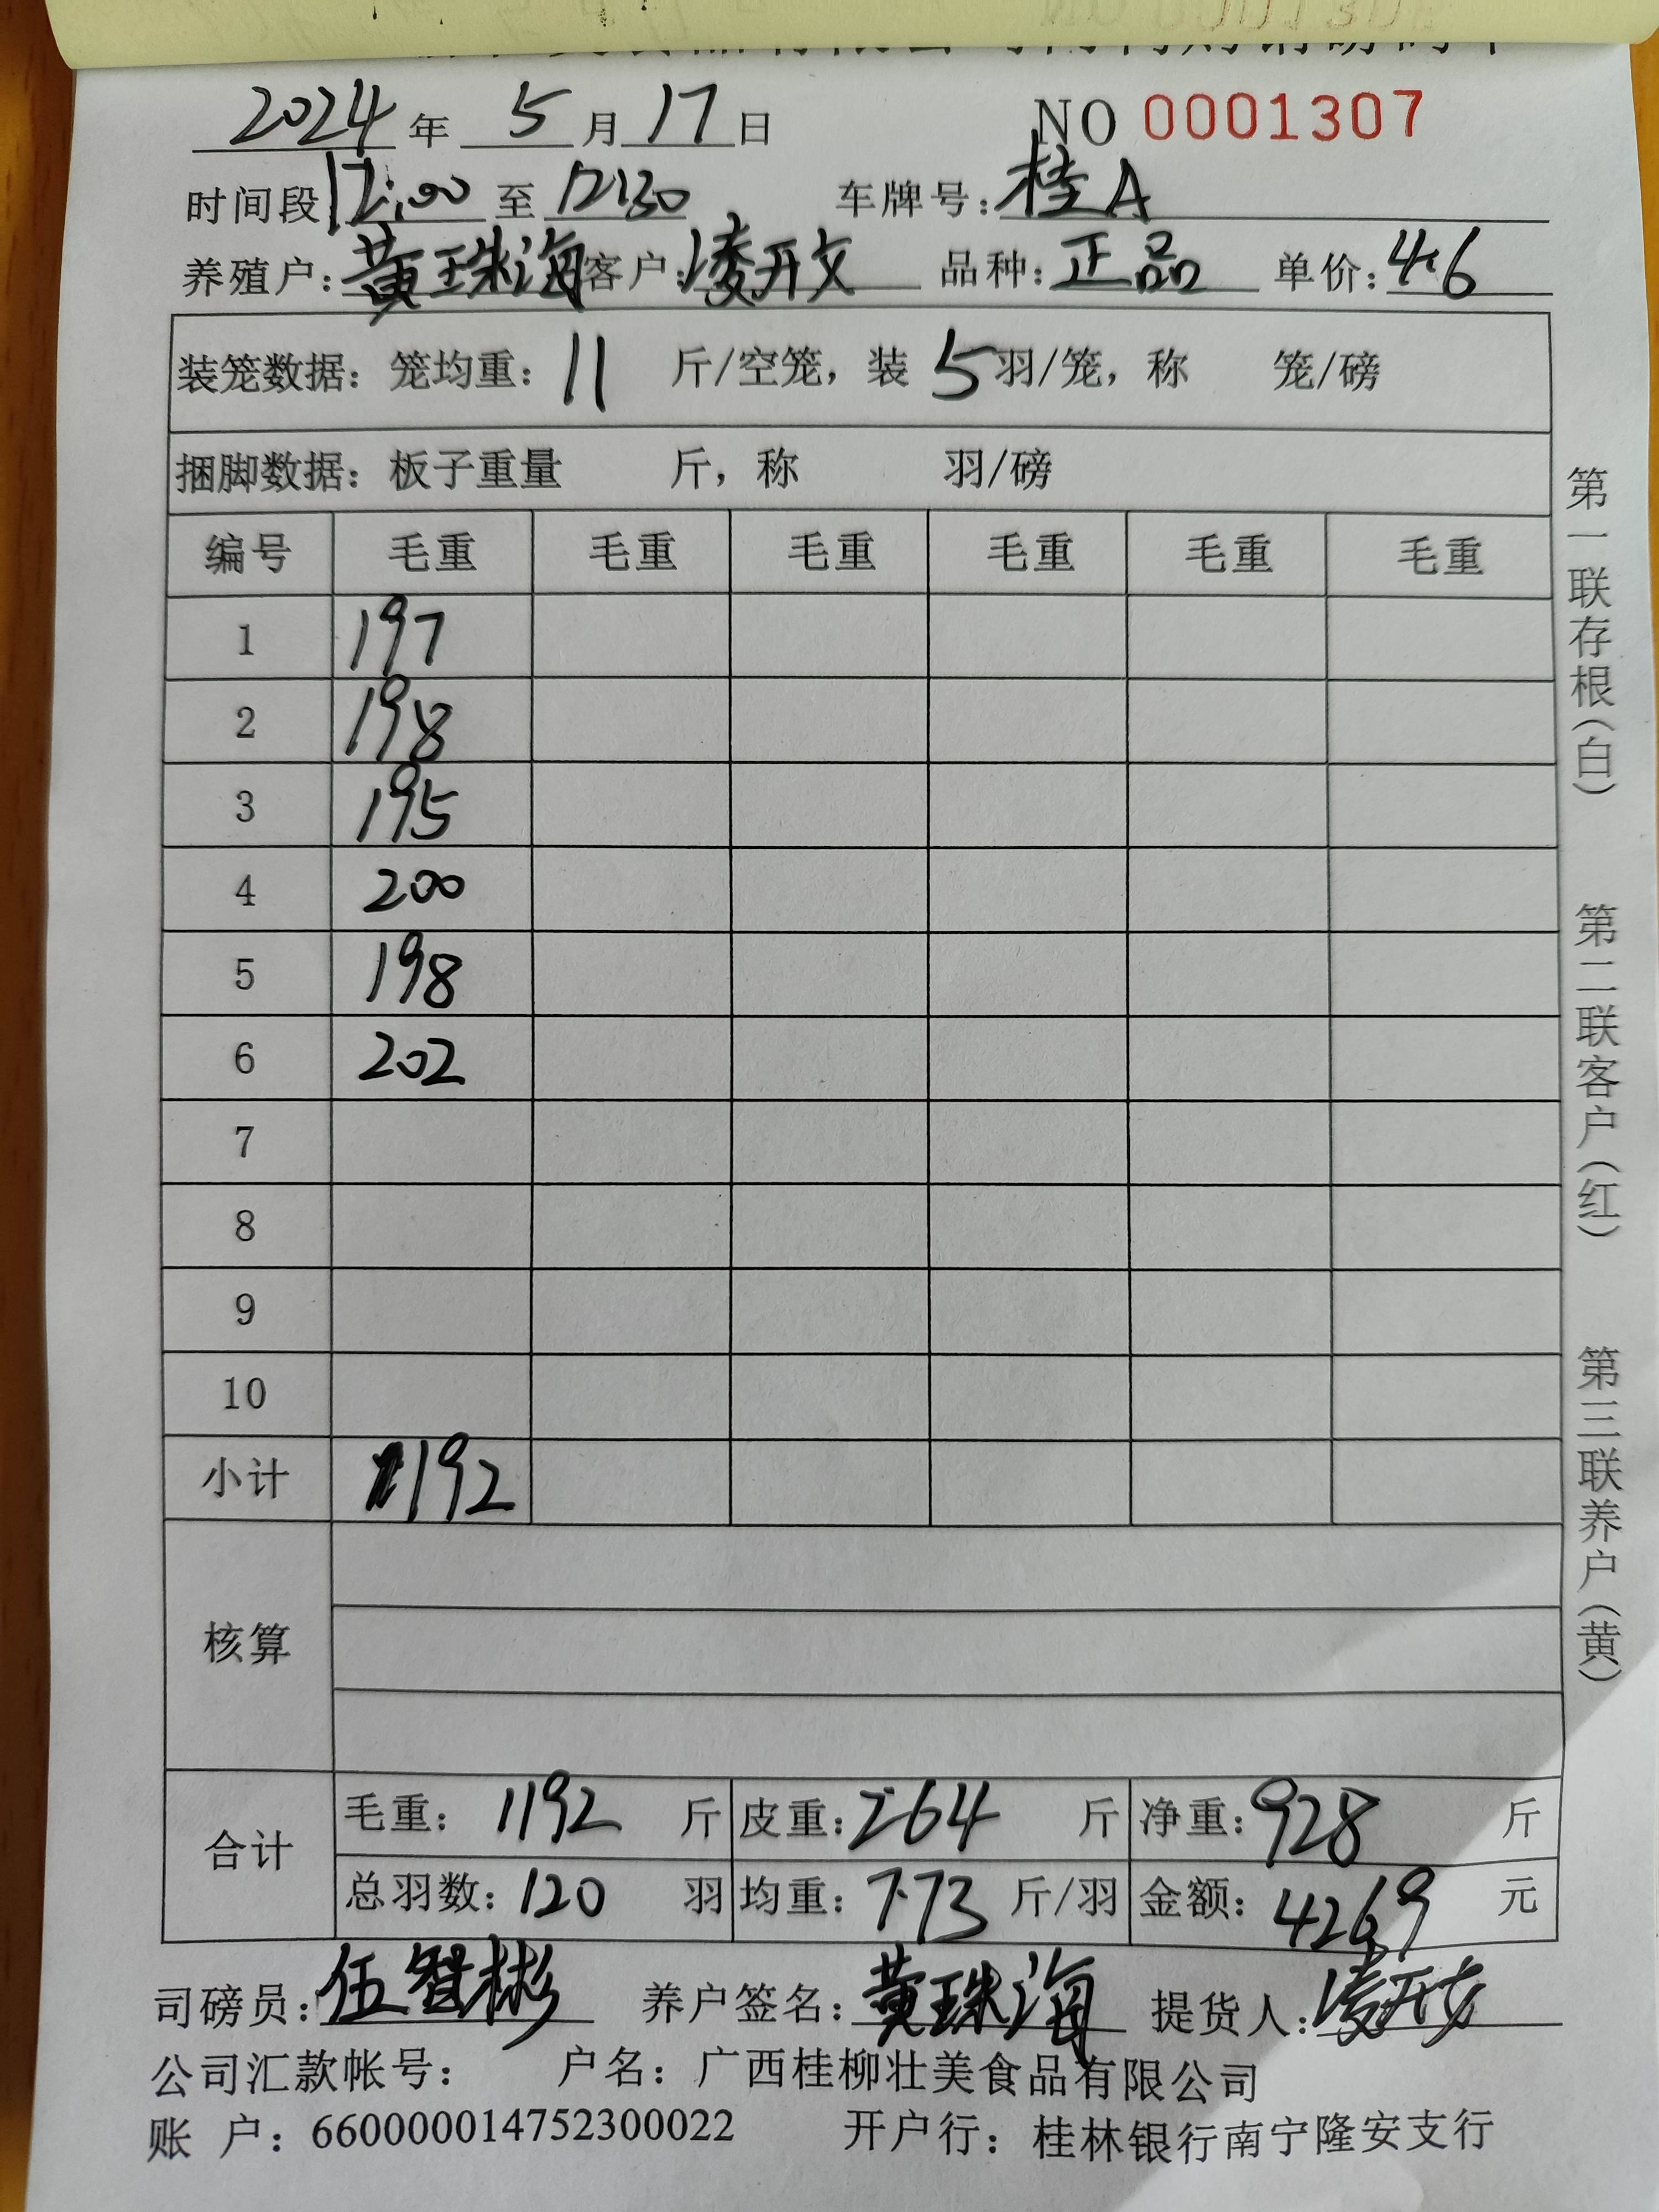 2024年 5月17日 NO 0001307
时间段12:00至12:30 车牌号:桂A
养殖户:黄珠海 客户:凌开文 品种:正品 单价:4.6
装笼数据: 笼均重: 11 斤/空笼, 装 5 羽/笼, 称 笼/磅
捆脚数据: 板子重量 斤, 称 羽/磅
编号 毛重 毛重 毛重 毛重 毛重 毛重
1 197
2 198
3 195
4 200
5 198
6 202
7
8
9
10
小计 1192
核算
合计
毛重: 1192 斤 皮重:264 斤 净重:928 斤
总羽数:120 羽 均重:7.73 斤/羽 金额:4269 元
司磅员:伍智彬 养户签名:黄珠海 提货人:凌开文
公司汇款帐号: 户名: 广西桂柳壮美食品有限公司
账 户: 660000014752300022 开户行: 桂林银行南宁隆安支行
第一联存根(白) 第二联客户(红) 第三联养户(黄)